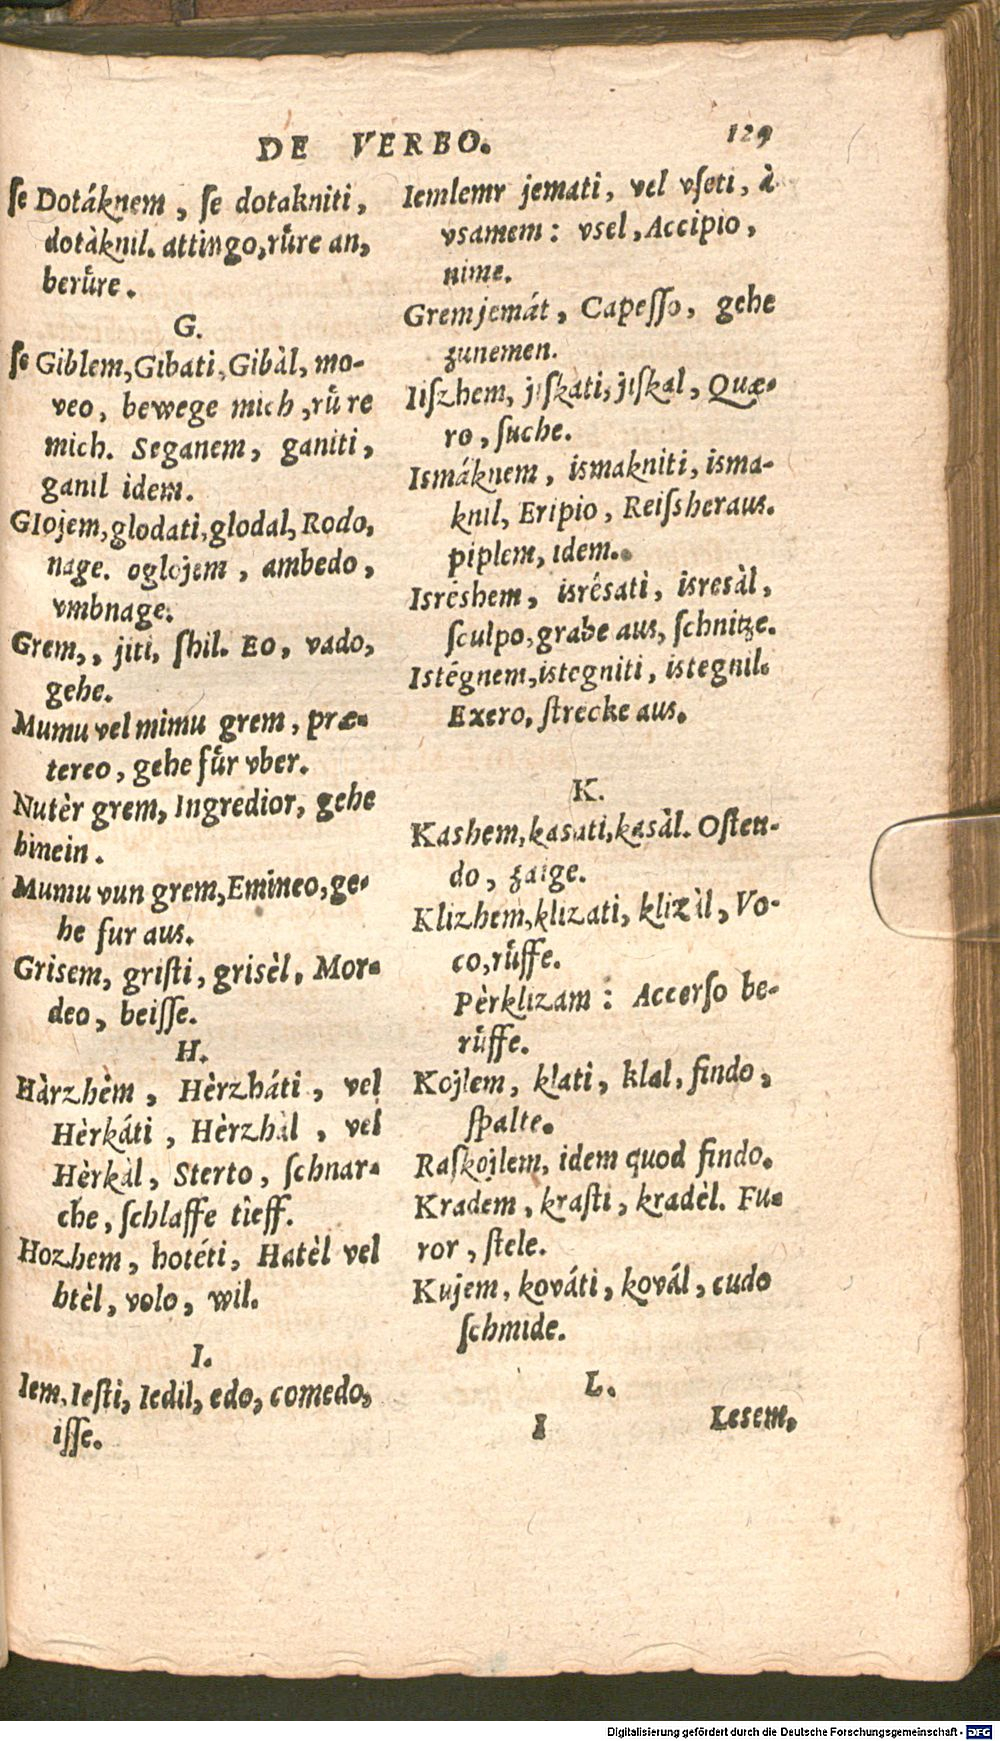 DE VERBO. 129
ſe Dotáknem, ſe dotakniti,
dotàknil. attingo, růre an,
berůre.
G.
ſe Giblem, Gibati, Gibàl, mo-
veo, bewege mich, růre
mich. Seganem, ganiti,
ganil idem.
Glojem, glodati, glodal, Rodo,
nage. oglojem, ambedo,
vmbnage.
Grem,, jiti, ſhil. Eo, vado,
gehe.
Mumu vel mimu grem, præ-
tereo, gehe fůr vber.
Nutèr grem, Ingredior, gehe
hinein.
Mumu vun grem, Emineo, ge-
he fur aus.
Grisem, griſti, grisèl, Mor-
deo, beiſſe.
H.
Hàrzhèm, Hèrzháti, vel
Hèrkáti, Hèrzhàl, vel
Hèrkàl, Sterto, ſchnar-
che, ſchlaffe tieff.
Hozhem, hotéti, Hatèl vel
htèl, volo, wil.
I.
Iem, Ieſti, Iedil, edo, comedo,
iſſe.
Iemlemr jemati, vel vſeti, à
vsamem: vsel, Accipio,
nime.
Gremjemát, Capeſſo, gehe
zunemen.
Iiſzhem, jiſkati, jiſkal, Quæ-
ro, ſuche.
Ismáknem, ismakniti, isma-
knil, Eripio, Reiſsheraus.
piplem, idem.
Isréshem, isrêsati, isresàl,
ſculpo, grabe aus, ſchnitze.
Istégnem, istegniti, istegnil.
Exero, ſtrecke aus.
K.
Kashem, kasati, kasàl. Oſten-
do, zaige.
Klizhem, klizati, klizàl, Vo-
co, růffe.
Pèrklizam: Accerſo be-
růffe.
Kojlem, klati, klal, findo,
ſpalte.
Raſkojlem, idem quod findo.
Kradem, kraſti, kradèl. Fu-
ror, ſtele.
Kujem, kováti, kovál, cudo
ſchmide.
L.
I Lesem,
Digitalisierung gefördert durch die Deutsche Forschungsgemeinschaft - DFG